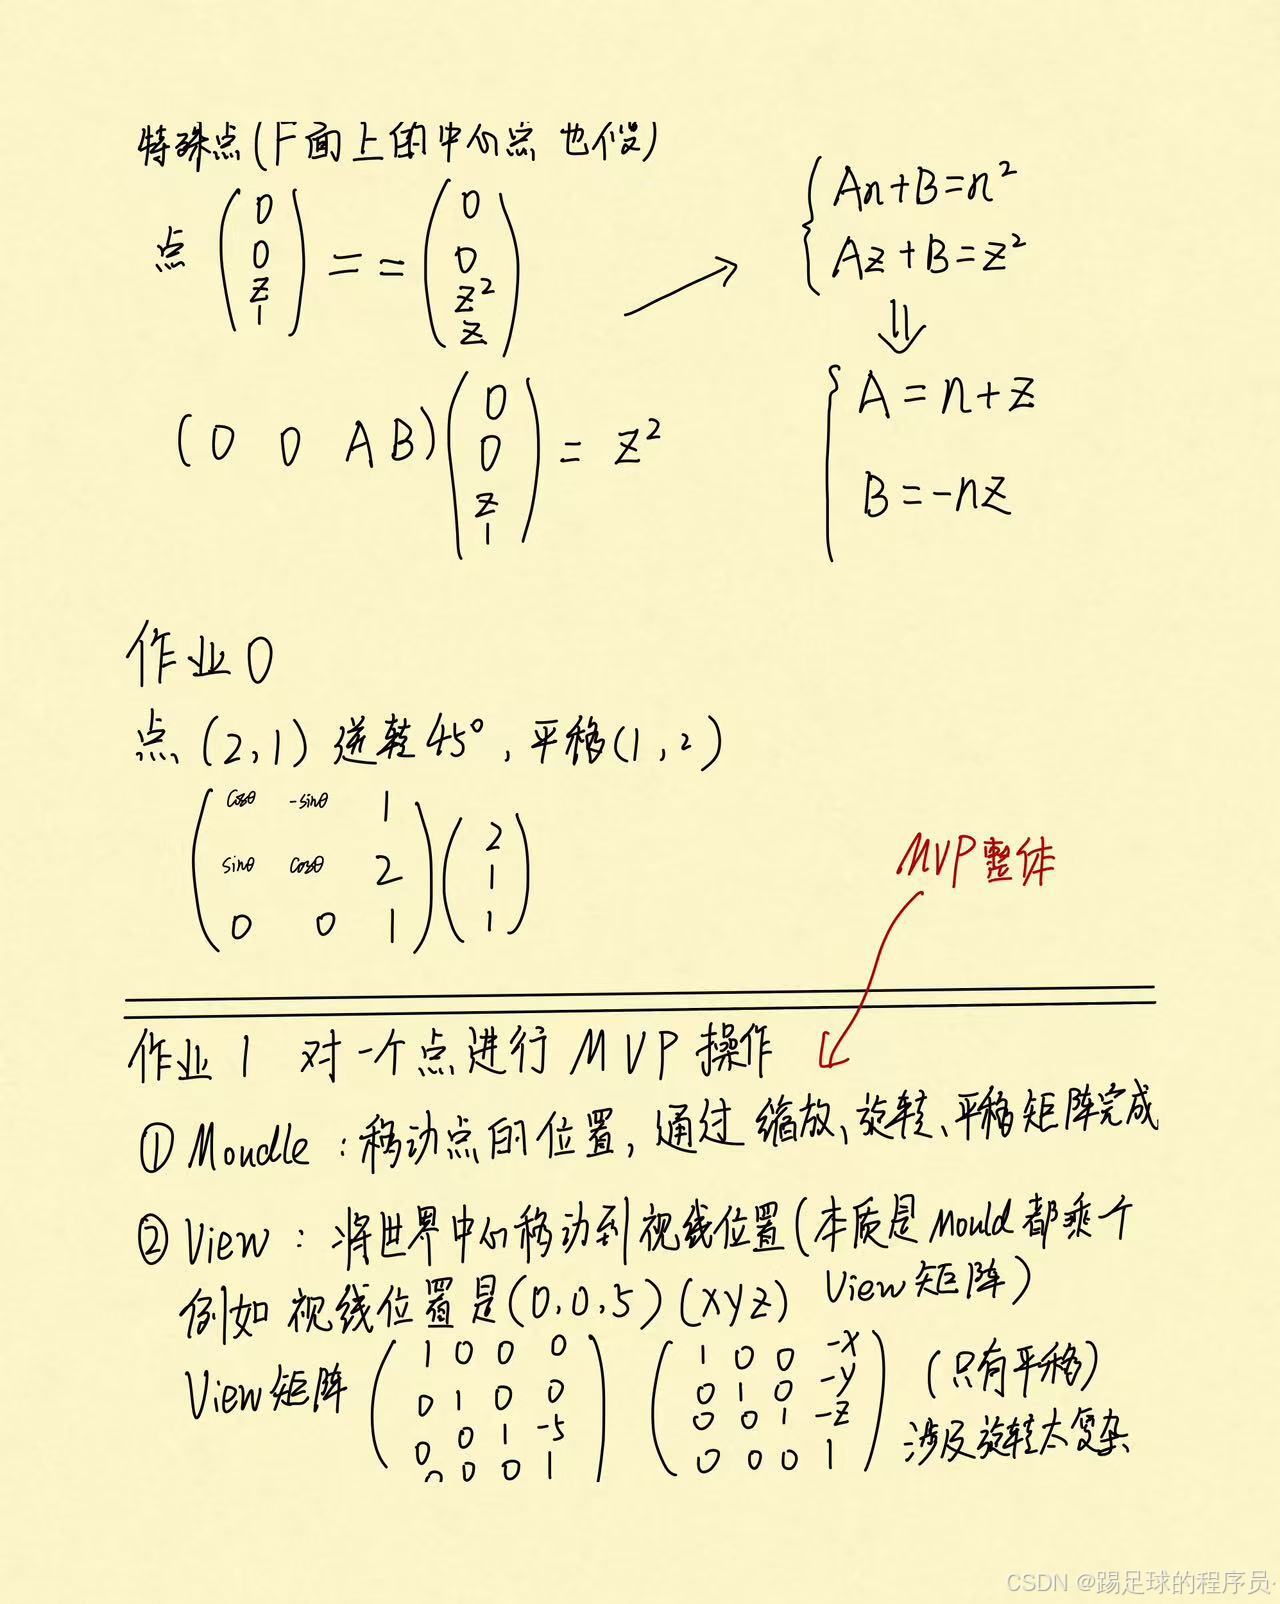 特殊点(F面上的中心点 也不变)
点 (0 0 z 1) == (0 0 z² z)
(0 0 A B)(0 0 z 1) = z²
{An+B=n²
Az+B=z²
⇓
{A=n+z
B=-nz
作业0
点(2,1) 逆转45°,平移(1,2)
(cosθ -sinθ 1
sinθ cosθ 2
0 0 1) (2 1 1)
MVP整体
作业1 对一个点进行 MVP 操作
① Moudle:移动点的位置,通过缩放、旋转、平移矩阵完成
② View:将世界中心移动到视线位置(本质是Mould都乘个
View矩阵)
例如 视线位置是(0,0,5)(xyz)
View矩阵 (1 0 0 0
0 1 0 0
0 0 1 -5
0 0 0 1)
(1 0 0 -x
0 1 0 -y
0 0 1 -z
0 0 0 1)
(只有平移)
涉及旋转太复杂
CSDN @踢足球的程序员·